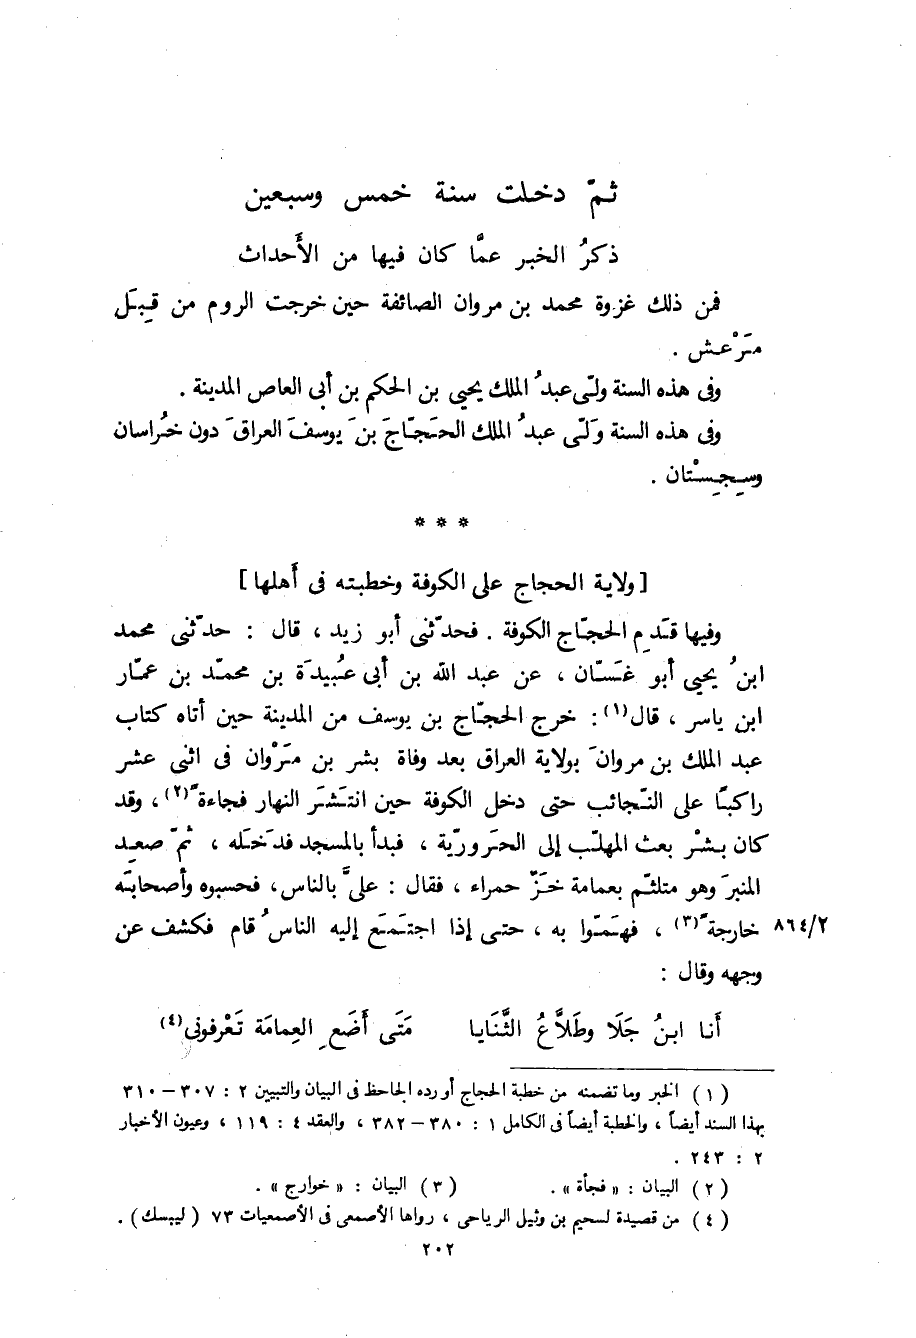 ثمّ دخلت سنة خمس وسبعين
ذكرُ الخبر عمَّا كان فيها من الأَحداث
فمن ذلك غزوة محمد بن مروان الصائفة حين خرجت الروم من قِبَل
مَرْعش .
وفى هذه السنة ولَّى عبدُ الملك يحيى بن الحكم بن أبى العاص المدينة .
وفى هذه السنة وَلّى عبدُ الملك الحَجّاجَ بنَ يوسفَ العراقَ دون خُراسان
وسِجِسْتان .
* * *
[ ولاية الحجاج على الكوفة وخطبته فى أَهلها ]
وفيها قَدِم الحجّاج الكوفة . فحدّثنى أبو زيد ، قال : حدّثنى محمد
ابنُ يحيى أبو غَسّان ، عن عبد الله بن أبى عُبيدَة بن محمّد بن عمّار
ابن ياسر ، قال(١): خرج الحجّاج بن يوسف من المدينة حين أتاه كتاب
عبد الملك بن مروانَ بولاية العراق بعد وفاة بشر بن مَرْوان فى اثنى عشر
راكبًا على النّجائب حتى دخل الكوفة حين انتَشَرَ النهار فجاءةً(٢)، وقد
كان بِشْر بعث المهلّب إلى الحَروريّة ، فبدأ بالمسجد فدَخَله ، ثمّ صعِد
المنبرَ وهو متلثّم بعمامة خَزّ حمراء ، فقال : علىَّ بالناس، فحسبوه وأصحابَه
خارجةً(٣) ، فهَمّوا به ، حتى إذا اجتَمَع إليه الناسُ قام فكشف عن ٨٦٤/٢
وجهه وقال :
أَنا ابنُ جَلَا وطَلاَّعُ الثَّنَايا مَتَى أَضَعِ العِمامَة تَعْرفونى(٤)
(١) الخبر وما تضمنه من خطبة الحجاج أورده الجاحظ فى البيان والتبيين ٢ : ٣٠٧ – ٣١٠
بهذا السند أيضاً ، والخطبة أيضاً فى الكامل ١ : ٣٨٠ – ٣٨٢ ، والعقد ٤ : ١١٩ ، وعيون الأخبار
٢ : ٢٤٣ .
(٢) البيان : « فجأة » . (٣) البيان : « خوارج » .
(٤) من قصيدة لسحيم بن وثيل الرياحى ، رواها الأصمعى فى الأصمعيات ٧٣ ( ليبسك ) .
٢٠٢